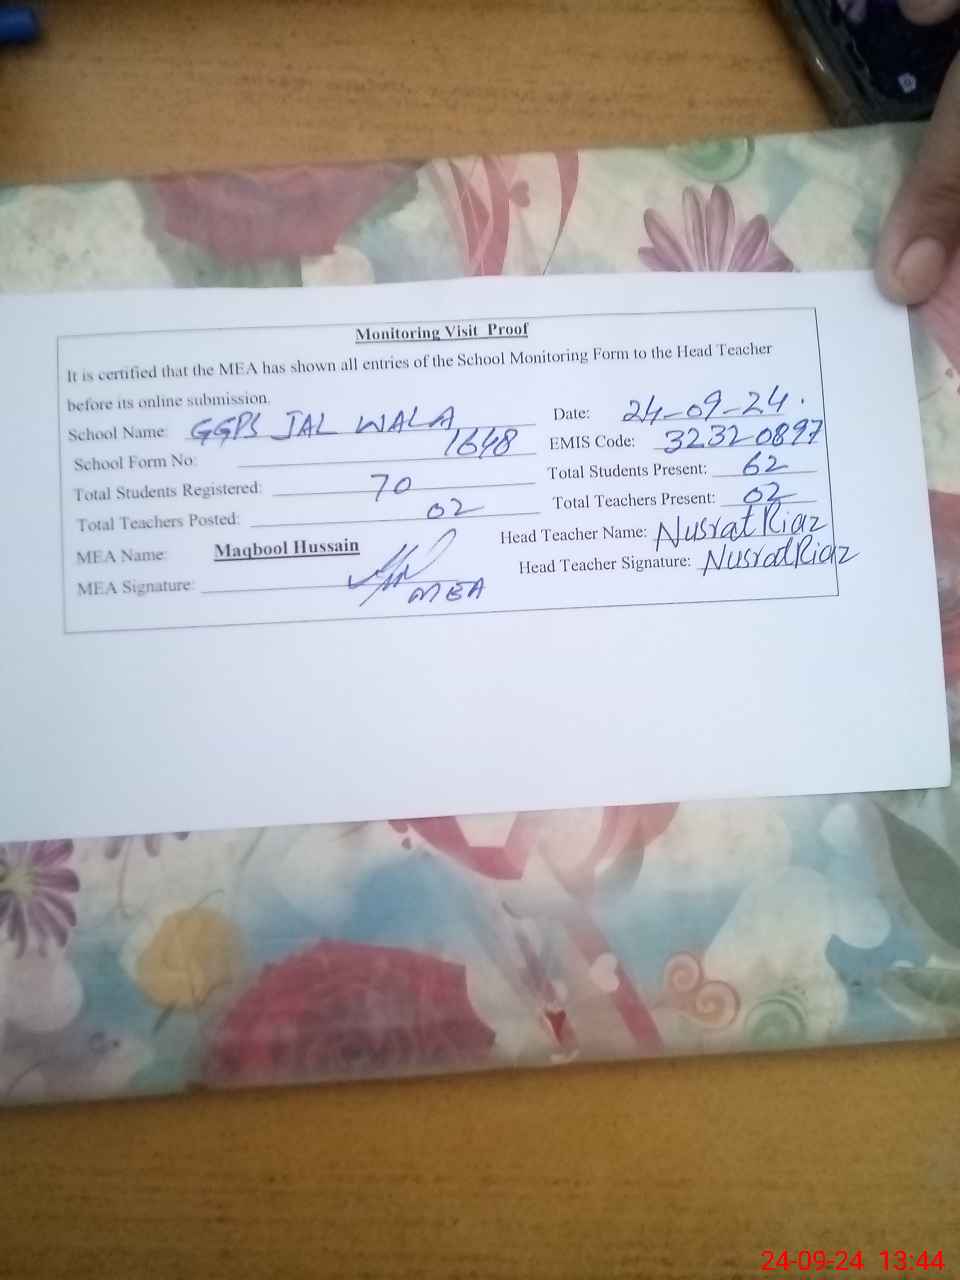 Monitoring Visit Proof
It is certified that the MEA has shown all entries of the School Monitoring Form to the Head Teacher
before its online submission.
School Name: GGPS JAL WALA Date: 24-09-24.
School Form No: 1648 EMIS Code: 32320897
Total Students Registered: 70 Total Students Present: 62
Total Teachers Posted: 02 Total Teachers Present: 02
MEA Name: Maqbool Hussain Head Teacher Name: Nusrat Riaz
MEA Signature: MEA Head Teacher Signature: Nusrat Riaz
24-09-24 13:44